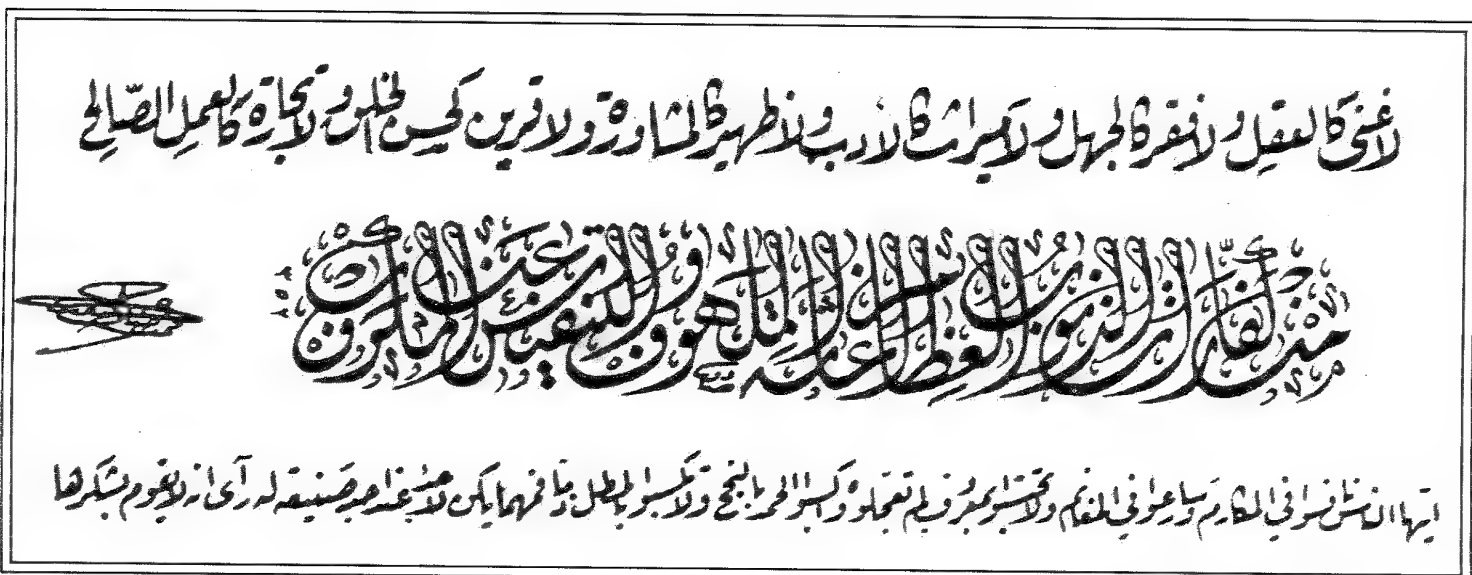 لا غنى كالعقل ولا فقر كالجهل ولا ميراث كالأدب ولا ظهير كالمشاورة ولا قرين كحسن الخلق ولا تجارة كالعمل الصالح
من كفارات الذنوب العظام إغاثة الملهوف والتنفيس عن المكروب
ايها الناس نافسوا في المكارم وسارعوا في المغانم ولا تحتسبوا بمعروف لم تعجلوه واكسبوا الحمد بالنجح ولا تكسبوا بالمطل ذما فمهما يكن لأحد عند احد صنيعة له رآى انه لا يقوم بشكرها